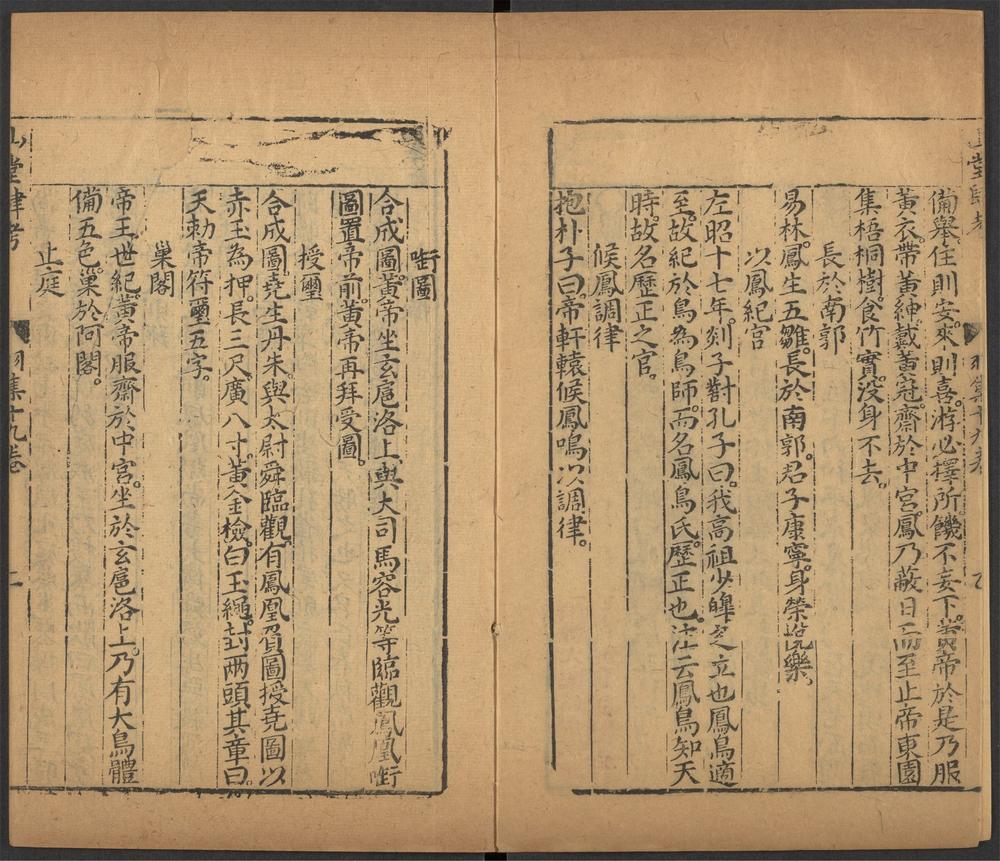 備舉.住則安.來則喜.游必擇所.饑不妄下.黃帝於是乃服
黃衣.帶黃紳.戴黃冠.齋於中宮.鳳乃蔽日而至.止帝東園
集梧桐樹.食竹實.没身不去.
長於南郭
易林.鳳生五雛.長於南郭.君子康寧.身榮悦樂.
以鳳紀官
左昭十七年.郯子對孔子曰.我高祖少皥之立也.鳳鳥適
至.故紀於鳥.為鳥師.而名鳳鳥氏.歷正也.注云鳳鳥知天
時.故名歷正之官.
候鳳調律
抱朴子曰.帝軒轅候鳳鳴以調律.
銜圖
合成圖.黃帝坐玄扈洛上.與大司馬容光等臨觀.鳳凰銜
圖置帝前.黃帝再拜受圖.
授璽
合成圖.堯生丹朱.與太尉舜臨觀.有鳳凰負圖授堯.圖以
赤玉為押.長三尺廣八寸.黃金檢.白玉繩.封两頭.其章曰.
天勑帝符璽五字.
巢閣
帝王世紀.黃帝服齋於中宮.坐於玄扈洛上.乃有大鳥體
備五色.巢於阿閣.
止庭
山堂肆考
羽集十九卷
二